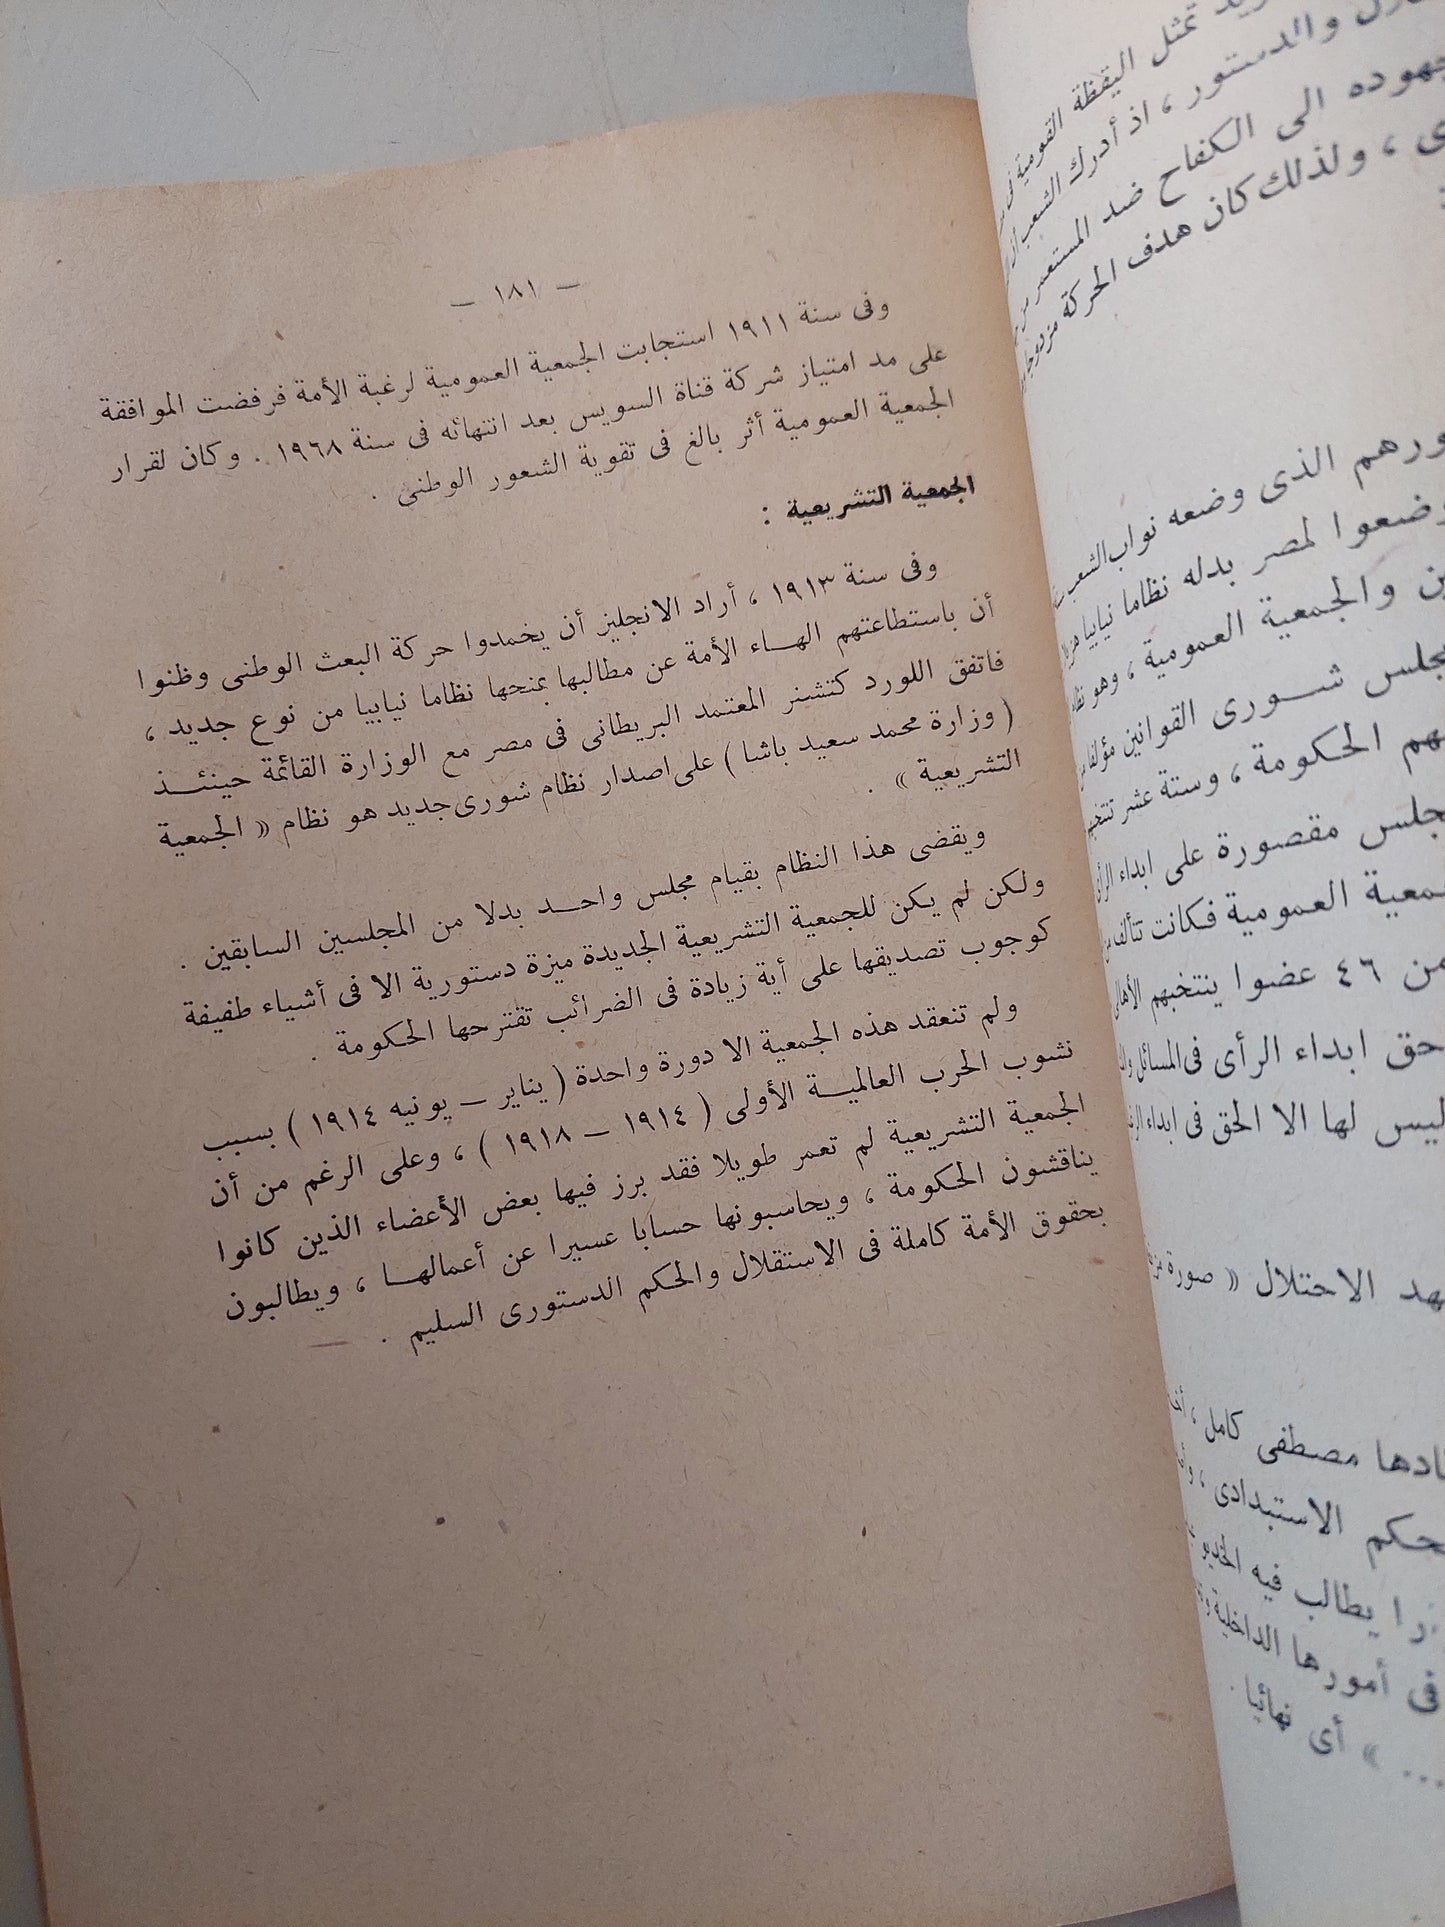 تمثل اليقظة القومية
والدستور ، اذ أدرك الشعب
جهوده الى الكفاح ضد المستعمر
، ولذلك كان هدف الحركة
الذى وضعه نواب الشعب
لمصر بدله نظاما نيابيا
والجمعية العمومية ، وهو
شورى القوانين مؤلفا
الحكومة ، وستة عشر
مقصورة على ابداء الرأى
العمومية فكانت تتألف من
من ٤٦ عضوا ينتخبهم الأهالى
حق ابداء الرأى فى المسائل
ليس لها الا الحق فى ابداء
الاحتلال « صورة
مصطفى كامل ،
الاستبدادى ،
يطالب فيه الخديو
فى أمورها الداخلية
... » أى نهائيا .
— ١٨١ —
وفى سنة ١٩١١ استجابت الجمعية العمومية لرغبة الأمة فرفضت الموافقة
على مد امتياز شركة قناة السويس بعد انتهائه فى سنة ١٩٦٨ . وكان لقرار
الجمعية العمومية أثر بالغ فى تقوية الشعور الوطنى .
الجمعية التشريعية :
وفى سنة ١٩١٣ ، أراد الانجليز أن يخمدوا حركة البعث الوطنى وظنوا
أن باستطاعتهم الهاء الأمة عن مطالبها بمنحها نظاما نيابيا من نوع جديد ،
فاتفق اللورد كتشنر المعتمد البريطانى فى مصر مع الوزارة القائمة حينئذ
( وزارة محمد سعيد باشا ) على اصدار نظام شورى جديد هو نظام « الجمعية
التشريعية » .
ويقضى هذا النظام بقيام مجلس واحد بدلا من المجلسين السابقين .
ولكن لم يكن للجمعية التشريعية الجديدة ميزة دستورية الا فى أشياء طفيفة
كوجوب تصديقها على أية زيادة فى الضرائب تقترحها الحكومة .
ولم تنعقد هذه الجمعية الا دورة واحدة ( يناير — يونيه ١٩١٤ ) بسبب
نشوب الحرب العالمية الأولى ( ١٩١٤ — ١٩١٨ ) ، وعلى الرغم من أن
الجمعية التشريعية لم تعمر طويلا فقد برز فيها بعض الأعضاء الذين كانوا
يناقشون الحكومة ، ويحاسبونها حسابا عسيرا عن أعمالها ، ويطالبون
بحقوق الأمة كاملة فى الاستقلال والحكم الدستورى السليم .